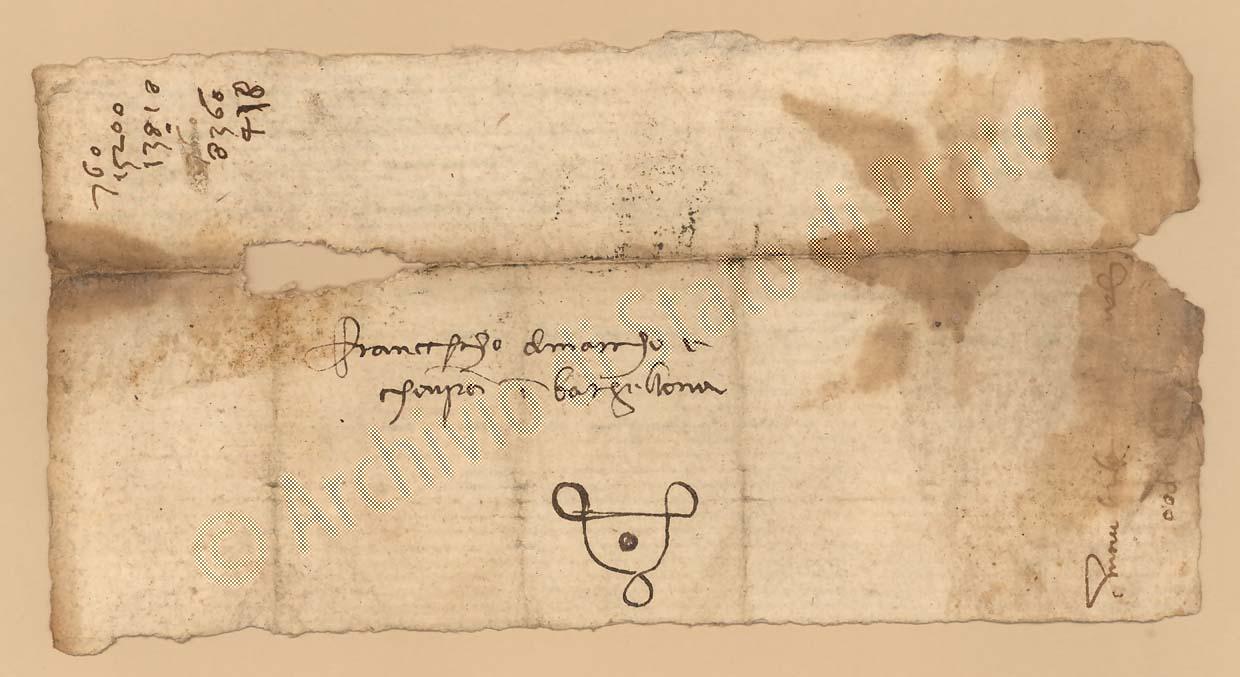 760
15200
13810
8360
418
Francescho di Marcho e
chonpa in Barzellona
© Archivio di Stato di Prato